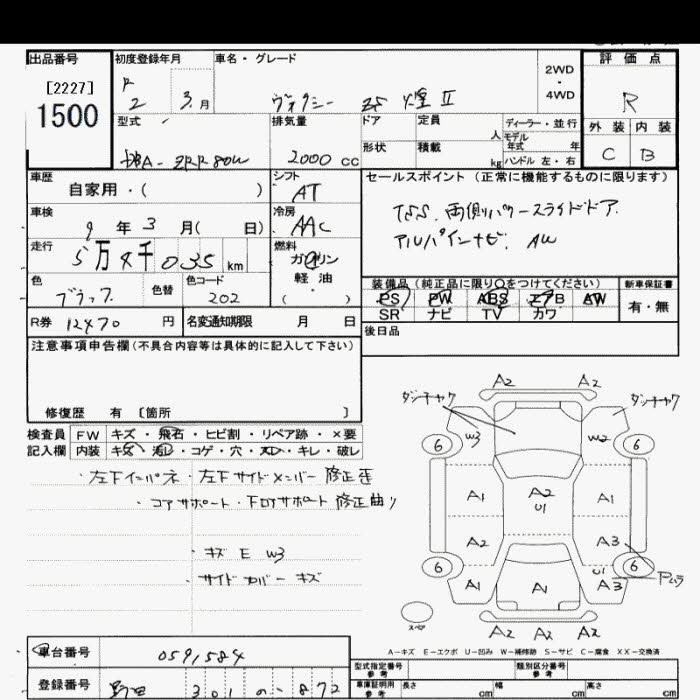 出品番号
[2227]
1500
初度登録年月
R 2 3.月
車名・グレード
ヴォクシー ZS 煌Ⅱ
2WD
・
4WD
評価点
R
外装 内装
C B
型式
DBA-ZRR80W
排気量
2000 cc
ドア 定員 人
形状 積載 kg
ディーラー・並行
モデル
年式 年
ハンドル 左・右
車歴
自家用・( )
シフト
AT
車検
9 年 3 月( 日)
冷房
AAC
走行
5万4千035 km
燃料
ガソリン
軽油
( )
色
ブラック
色替
色コード
202
R券 12470 円
名変通知期限 月 日
セールスポイント (正常に機能するものに限ります)
TSS. 両側パワースライドドア.
アルパインナビ. AW
装備品(純正品に限り○をつけてください)
PS PW ABS エアB AW
SR ナビ TV カワ
新車保証書
有・無
後日品
注意事項申告欄(不具合内容等は具体的に記入して下さい)
修復歴 有 〔箇所 〕
検査員
記入欄
FW キズ・飛石・ヒビ割・リペア跡・×要
内装 キズ・汚レ・コゲ・穴・スレ・キレ・破レ
・左下インパネ・左下サイドメンバー 修正歪
・コアサポート・下口アサポート 修正曲り
・キズ E W3
・サイドカバー キズ
A2 A2
ダンチャク ダンチャク
W3 W2
6 6
A1 A2 U1 A1
A2 A3
6 6
A1 A1 U1 A3 Pムラ
スペア
A2 A2 A2
A-キズ E-エクボ U-凹み W-補修跡 S-サビ C-腐食 XX-交換済
車台番号 0591584
登録番号 野田 301 の 872
型式指定番号
参考
類別区分番号
参考
車庫証明用
参考
長さ cm
幅 cm
高さ cm